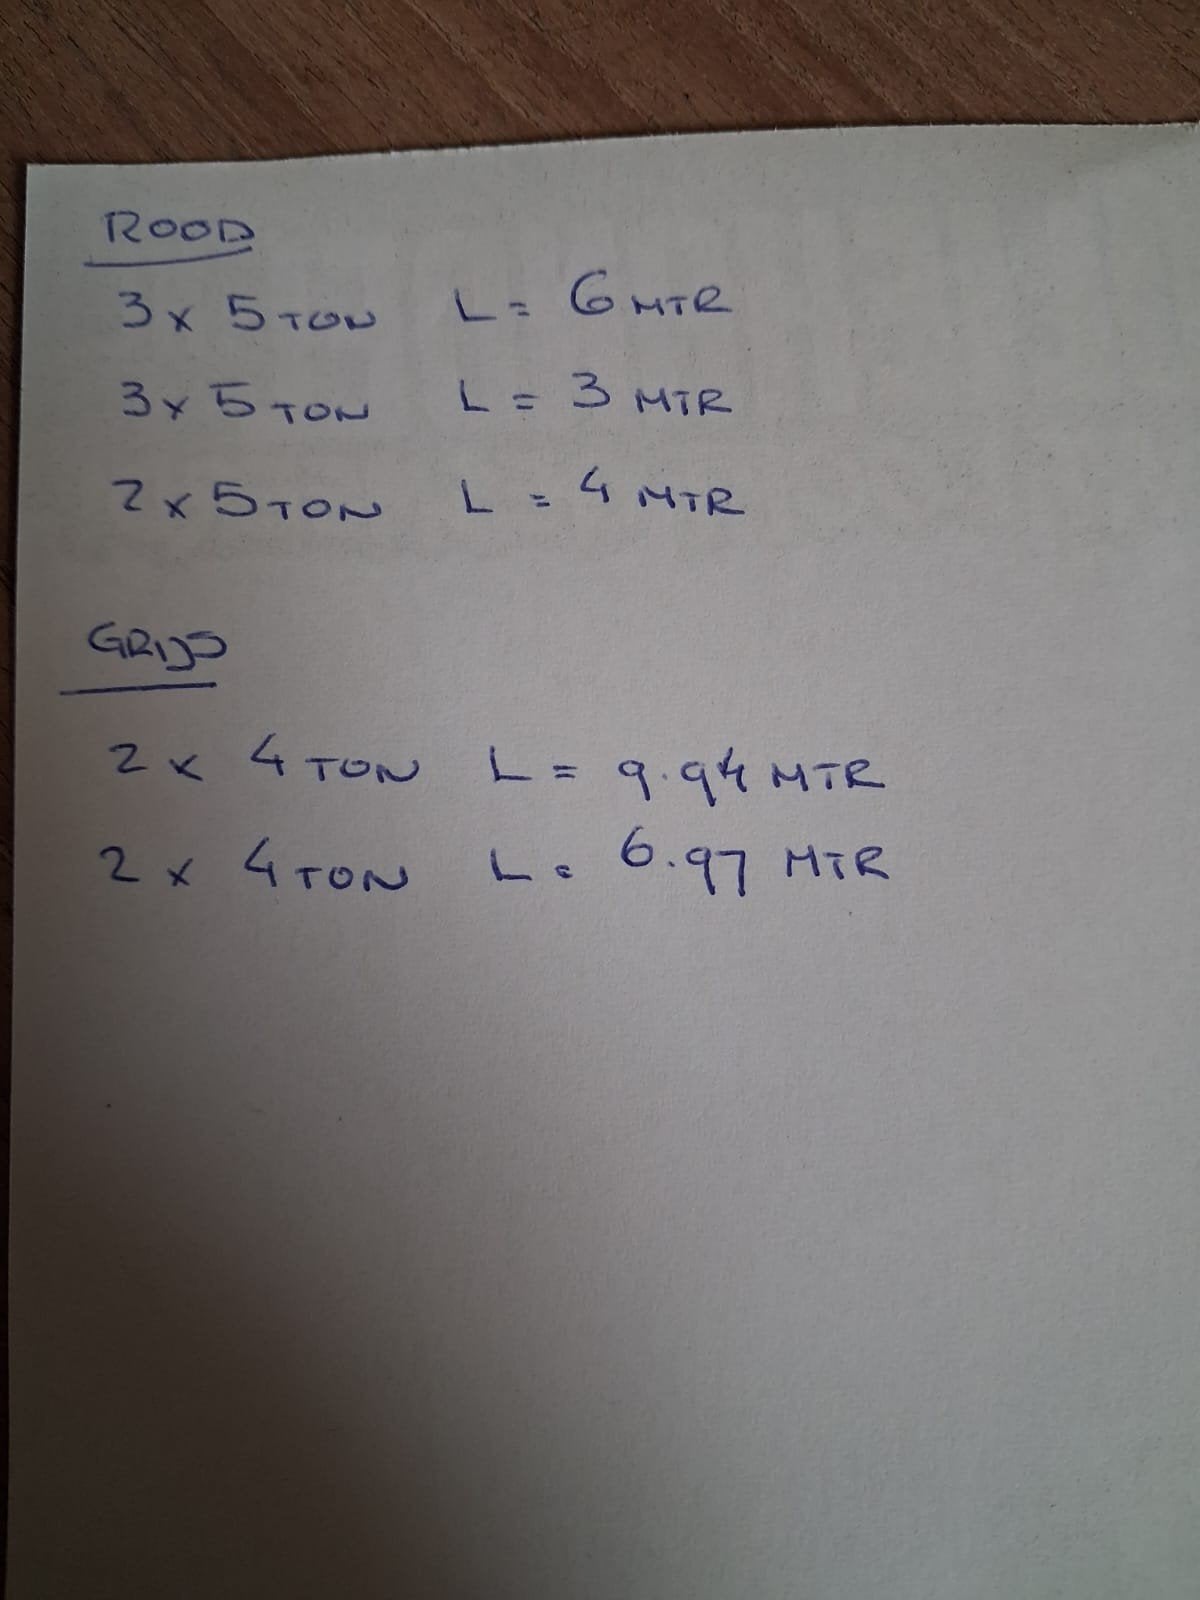 ROOD
3 x 5 TON L = 6 MTR
3 x 5 TON L = 3 MTR
2 x 5 TON L = 4 MTR
GRIJS
2 x 4 TON L = 9.94 MTR
2 x 4 TON L = 6.97 MTR